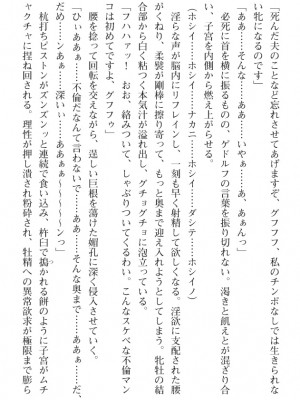 「死んだ夫のことなど忘れさせてあげますぞ、グフフフ、私のチンポなしでは生きられな
い牝になるのです」
「あぁ……そんな……ああ……いやぁ……あ、あぁんっ」
必死に首を横に振るものの、ゲドルフの言葉を振り切れない。渇きと飢えとが混ざり合
い、子宮を内側から燃え上がらせる。
(ホシイ……ホシイ……ナカニ……ホシイ……ダシテ……ホシイノ)
淫らな声が脳内にリフレインし、一刻も早く射精して欲しくなる。淫欲に支配された腰
がくねり、柔襞が剛棒に擦り寄って、もっと奥まで迎え入れようとしてしまう。牝牡の結
合部から白く泡つく本気汁が溢れ出し、グチョグチョに泡立っている。
「フハハァッ！　おお、絡みついて、しゃぶりついてくるわ。こんなスケベな不倫マン
コは初めてですよ、グフフゥ」
腰を捻って回転を交えながら、逞しい巨根を蕩けた媚孔に深く侵入させていく。
「ひぃああっ！　不倫だなんて言わないで……ああ……そんな奥まで……ああぁ……だ、
だめ……ンあぁ……深い……ああぁぁ～～～～ンっ」
杭打ちピストンがズンズンっと連続で食い込み、杵臼で搗かれる餅のように子宮がムチ
ャクチャに捏ね回される。理性が押し潰され粉砕され、牡精への異常欲求が極限まで膨ら